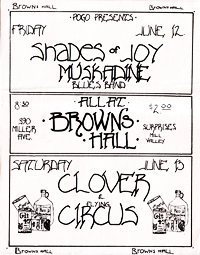 BROWNS HALL BROWNS HALL
POGO PRESENTS
FRIDAY JUNE 12
SHADES OF JOY
MUSKADINE
BLUES BAND
8:30 ALL AT $2.00
390 BROWNS SURPRISES
MILLER HALL MILL
AVE. VALLEY
SATURDAY JUNE 13
CLOVER
&
FLYING
CIRCUS
BROWNS HALL BROWNS HALL